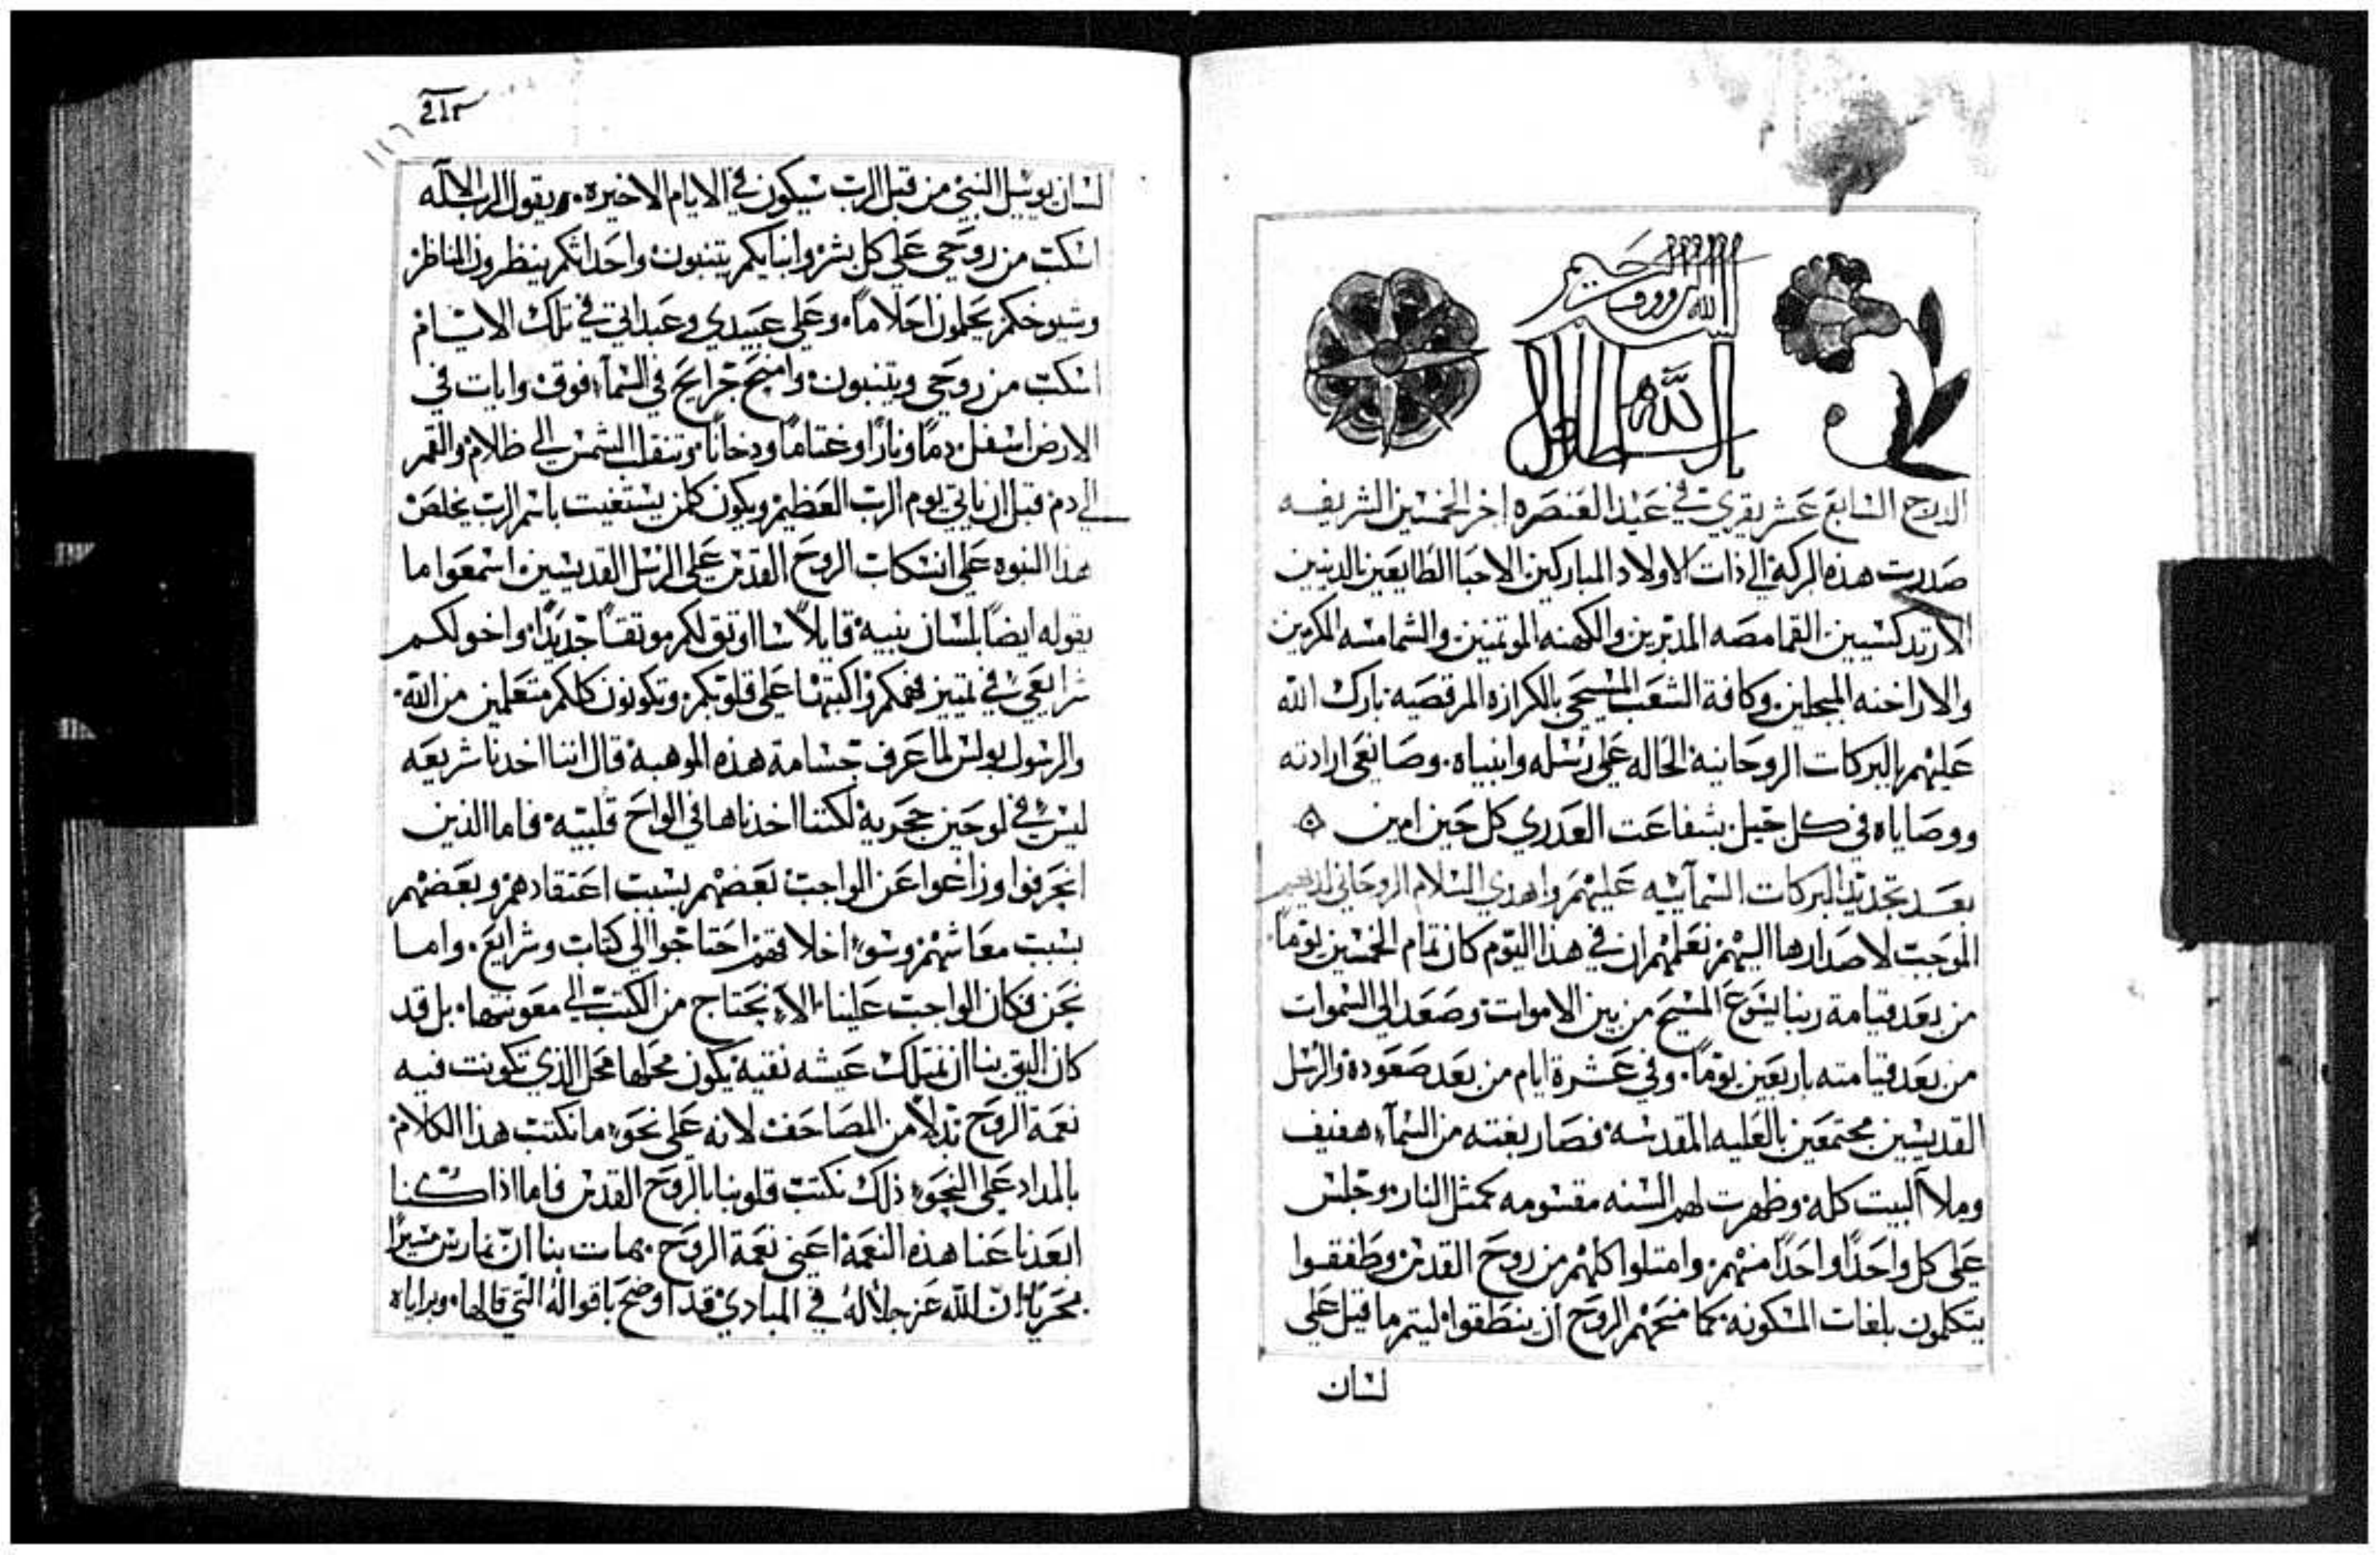 بسم الله الرووف الرحيم
الدرج السابع عشر يقري في عيد العنصره اخر الخمسين الشريفه
صدرت هذه البركة الي ذات الاولاد المباركين الاحبا الطايعين الدينين
الارتدكسيين القمامصه المدبرين والكهنه الموتمنين والشمامسه المكرمين
والاراخنه المبجلين وكافة الشعب المسيحي بالكرازه المرقصيه بارك الله
عليهم بالبركات الروحانية الحاله علي رسله وانبياه وصانعي ارادته
ووصاياه في كل جيل بشفاعت العدري كل حين امين
بعد تجديد البركات السمآييه عليهم واهدي السلام الروحاني لديهم
الموجب لاصدارها اليهم نعلمهم ان في هذا اليوم كان تمام الخمسين يوماً
من بعد قيامة ربنا يسوع المسيح من بين الاموات وصعد الي السموات
من بعد قيامته باربعين يوماً وفي عشرة ايام من بعد صعوده والرسل
القديسين مجتمعين بالعليه المقدسه فصار بغته من السمآء هفيف
وملآ البيت كله وظهرت لهم السنه مقسومه كمثل النار وجلس
علي كل واحداً واحداً منهم وامتلوا كلهم من روح القدس وطفقوا
يتكلمون بلغات المسكونه كما منحهم الروح ان ينطقوا ليتم ما قيل علي
لسان
١١٦
لسان يوييل النبي من قبل الرب سيكون في الايام الاخيره يقول الرب الاله
اسكب من روحي علي كل بشر وابنايكم يتنبون واحداثكم ينظرون المناظر
وشيوخكم يحلمون احلاماً وعلي عبيدي وعبداتي في تلك الايام
اسكب من روحي ويتنبون وامنح جرايح في السمآء فوق وايات في
الارض اسفل دماً وناراً وغتاماً ودخاناً وتنقلب الشمس الي ظلام والقمر
الي دم قبل ان ياتي يوم الرب العظيم ويكون كلمن يستغيت باسم الرب يخلص
هدا النبوه علي انسكات الروح القدس علي الرسل القديسين اسمعوا ما
يقوله ايضاً لسان نبيه قايلاً سااوتق لكم موتقتاً جديداً واخولكم
شرايعي في تمييز فهمكم واكتبها علي قلوبكم وتكونون كلكم متعلمين من الله
والرسول بولس لما عرف جسامة هذه الموهبة قال اننا اخدنا شريعه
ليس في لوحين حجرية لكننا اخدناها في الواح قلبيه فاما الذين
انحرفوا وزاغوا عن الواجب بعضهم بسبب اعتقادهم وبعضهم
بسبب معاشهم وسوء اخلاقهم احتاجوا الي كتاب وشرايع واما
نحن فكان الواجب علينا الا نحتاج من الكتب الي معونتها بل قد
كان اليق بنا ان نمتلك عيشه نقيه يكون محلها محل الذي تكونت فيه
نعمة الروح بدلاً من المصاحف لانه علي نحو ما نكتب هذا الكلام
بالمداد علي النحو ذلك نكتب قلوبنا بالروح القدس فاما اذا كنا
ابعدنا عنا هذه النعمة اعني نعمة الروح بنا ان نمارس
ان الله عز جلاله في المبادي قد اوضح باقواله التي قالها وبراياه